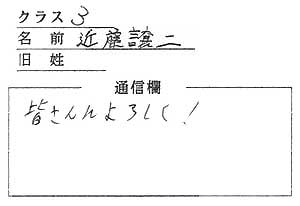 クラス 3
名前 近藤譲二
旧姓
通信欄
皆さんによろしく!